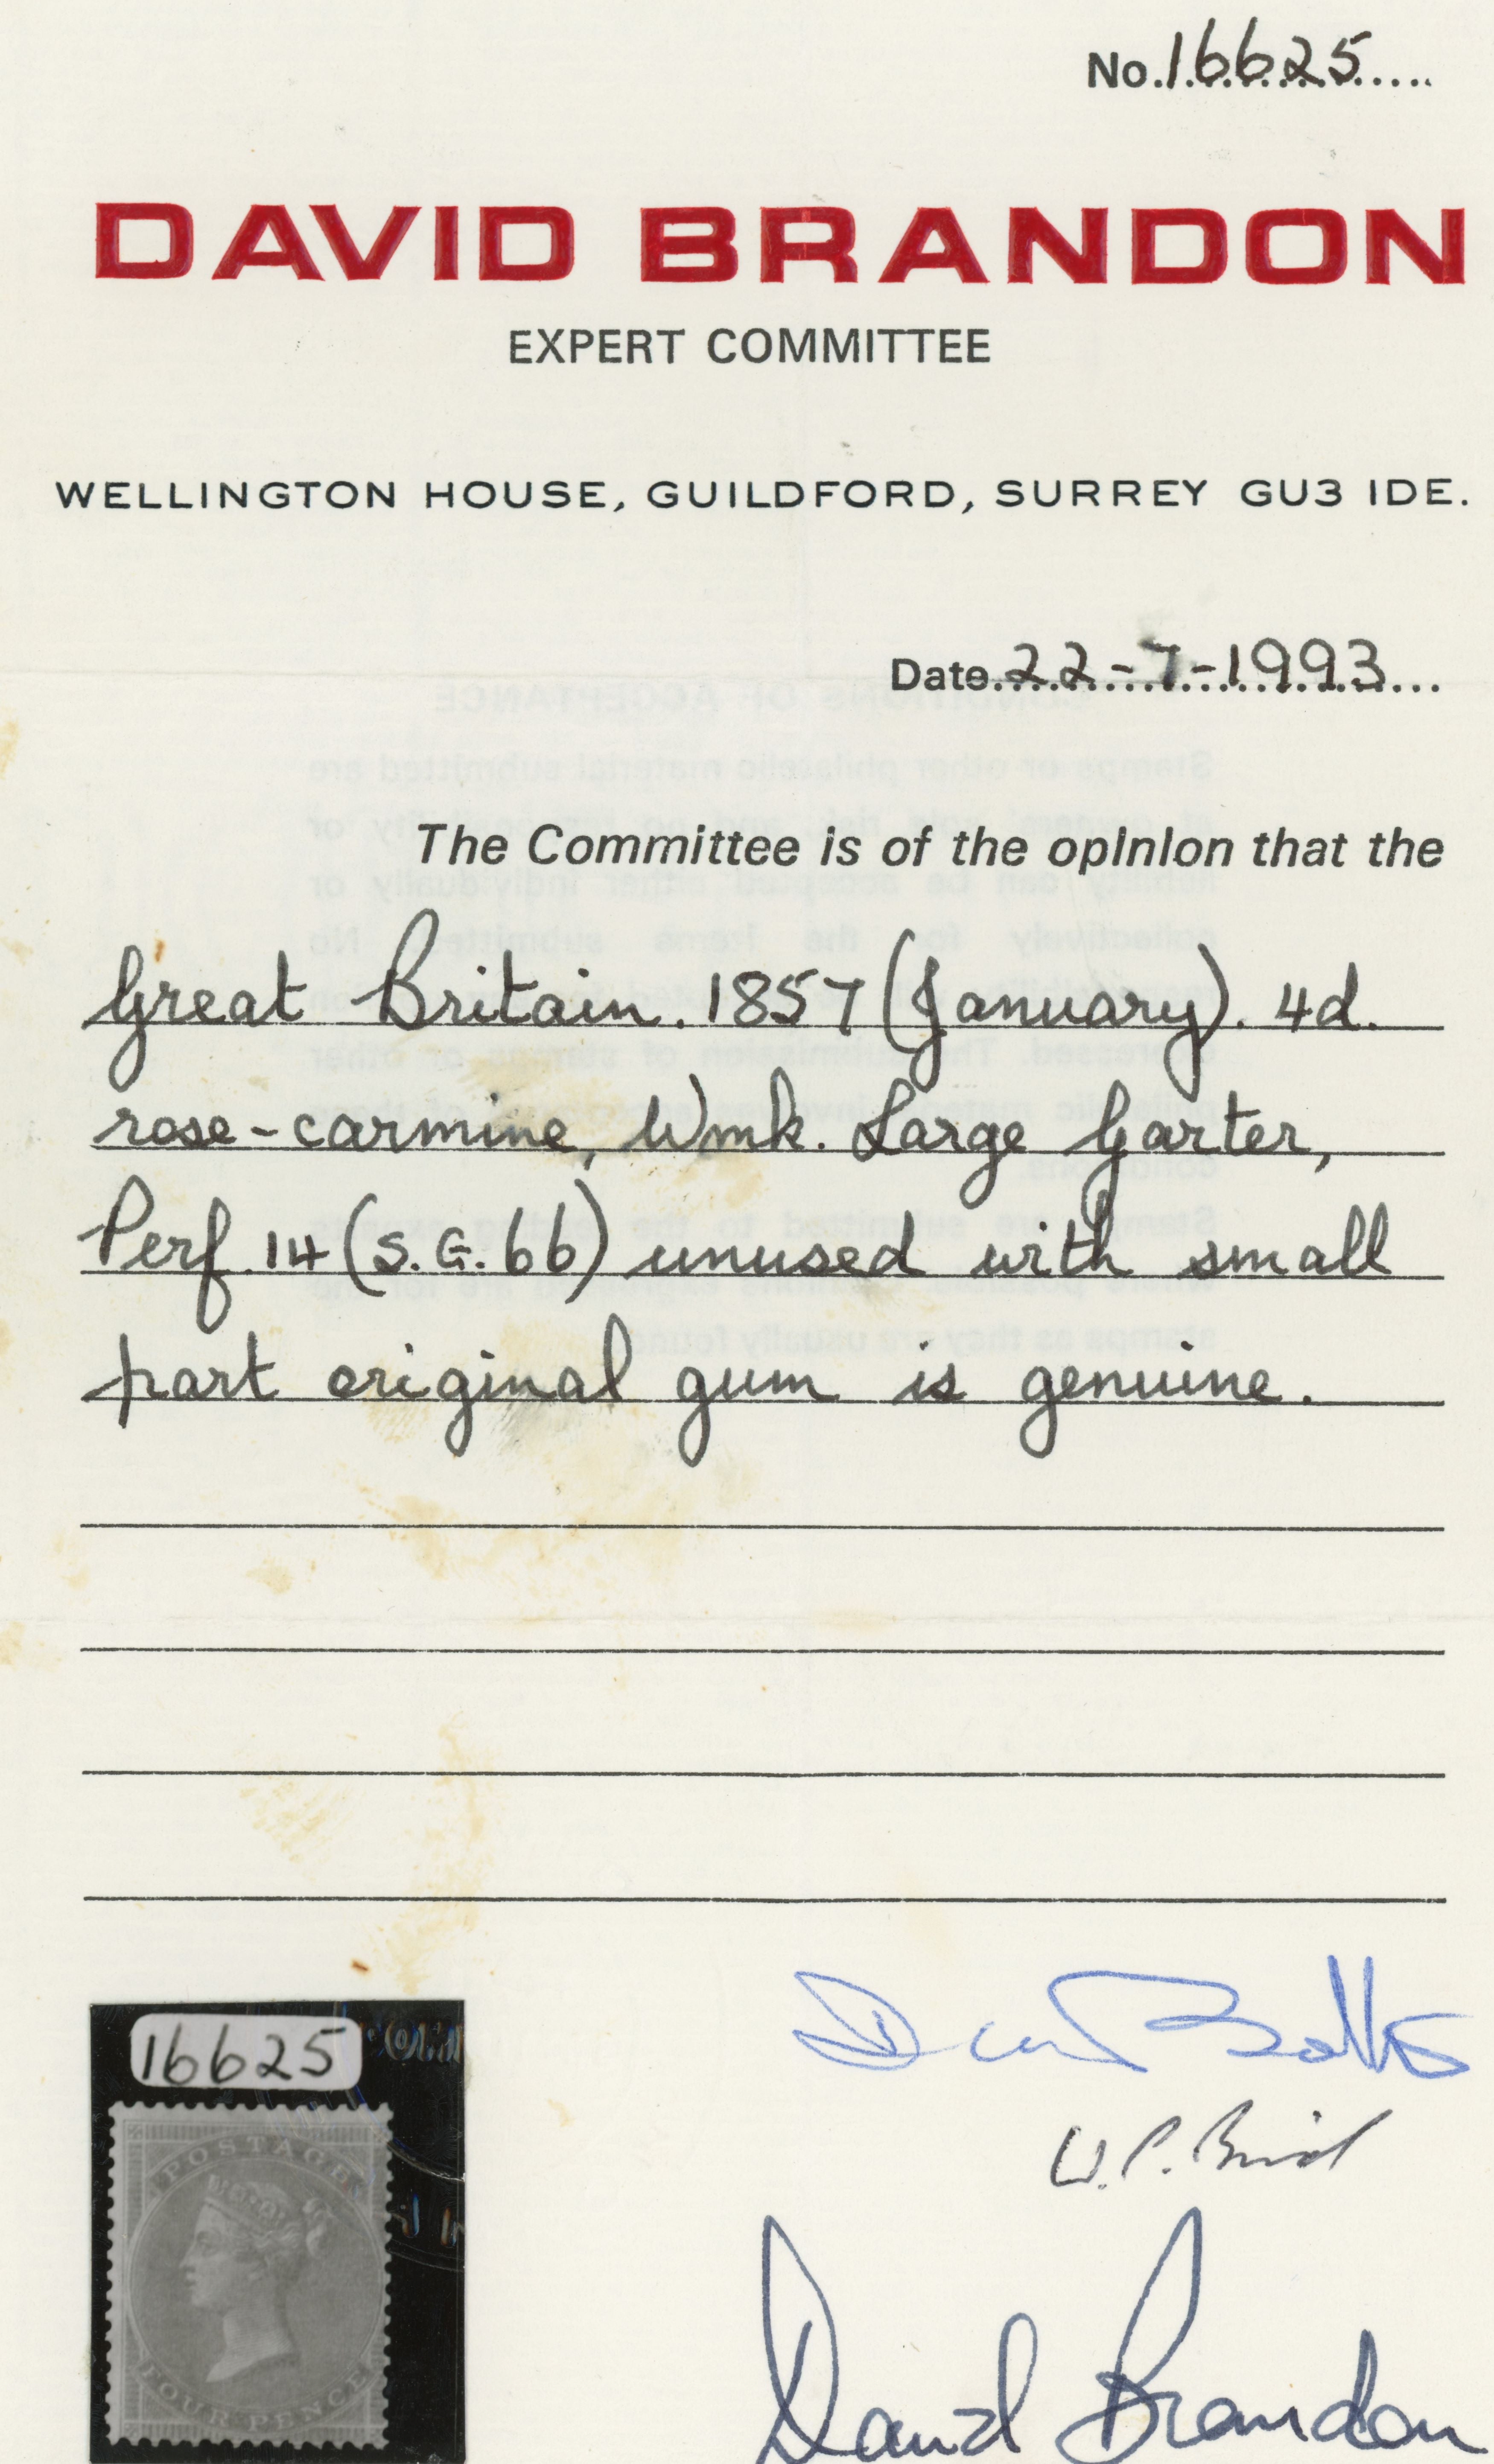 No. 16625
DAVID BRANDON
EXPERT COMMITTEE
WELLINGTON HOUSE, GUILDFORD, SURREY GU3 1DE.
Date 22-7-1993
The Committee is of the opinion that the
Great Britain. 1857 (January). 4d.
rose-carmine, Wmk. Large Garter,
Perf. 14 (S.G. 66) unused with small
part original gum is genuine.
16625
POSTAGE
FOUR PENCE
David Brandon